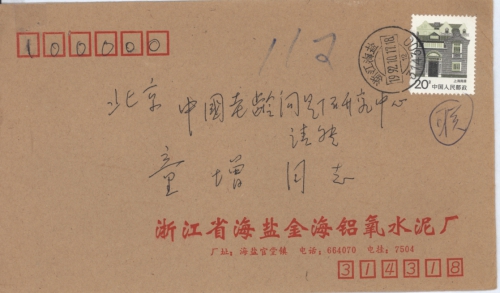 100000
112
上海民居
20分 中国人民邮政
北京 中国老龄问题研究中心
请转
童增 同志
浙江省海盐金海铝氧水泥厂
厂址：海盐官堂镇 电话：664070 电挂：7504
314318